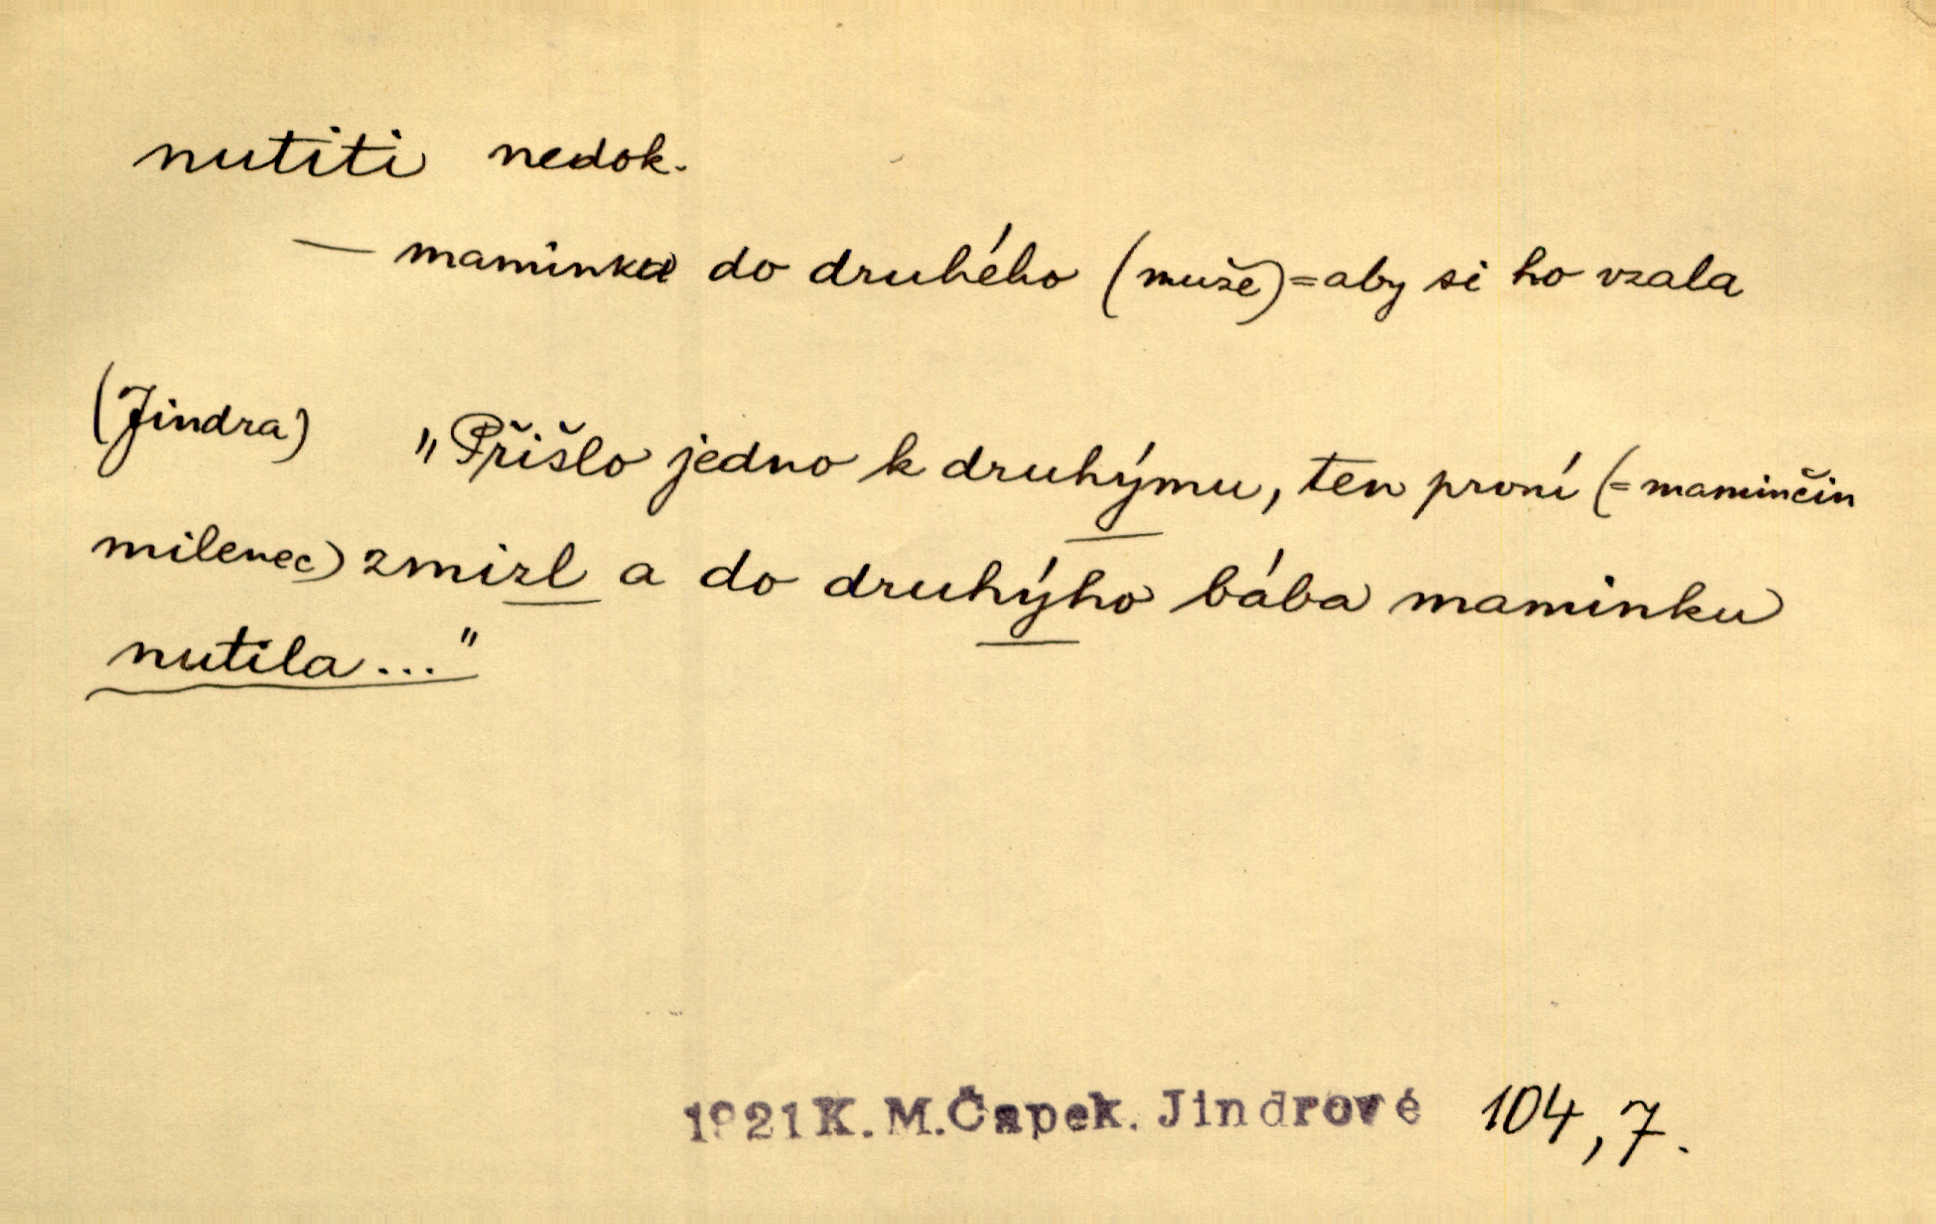 nutiti nedok.
— maminku do druhého (muže) = aby si ho vzala
(Jindra) „Přišlo jedno k druhýmu, ten první (= maminčin
milenec) zmirl a do druhýho bába maminku
nutila..."
1921 K. M. Čapek. Jindrové 104,7.